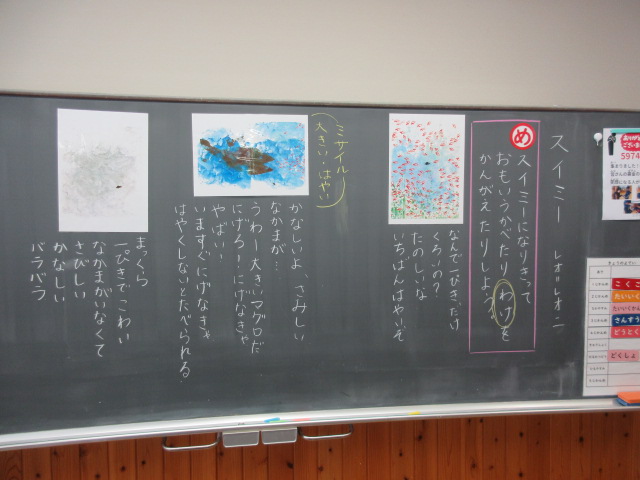 スイミー
レオ=レオニ
め
スイミーになりきって
おもいうかべたり わけを
かんがえたりしよう。
なんで一ぴきだけ
くろいの?
たのしいな
いちばんはやいぞ
ミサイル
大きい・はやい
かなしいよ、さみしい
なかまが…
うわー大きいマグロだ
にげろー!にげなきゃ
やばい!
いますぐにげなきゃ
はやくしないとたべられる。
まっくら
一ぴきでこわい
なかまがいなくて
さびしい
かなしい
バラバラ
ありがとう
ございます
5974
きょうのよてい
こくご
たいいく
たいいくかん
さんすう
どうとく
どくしょ